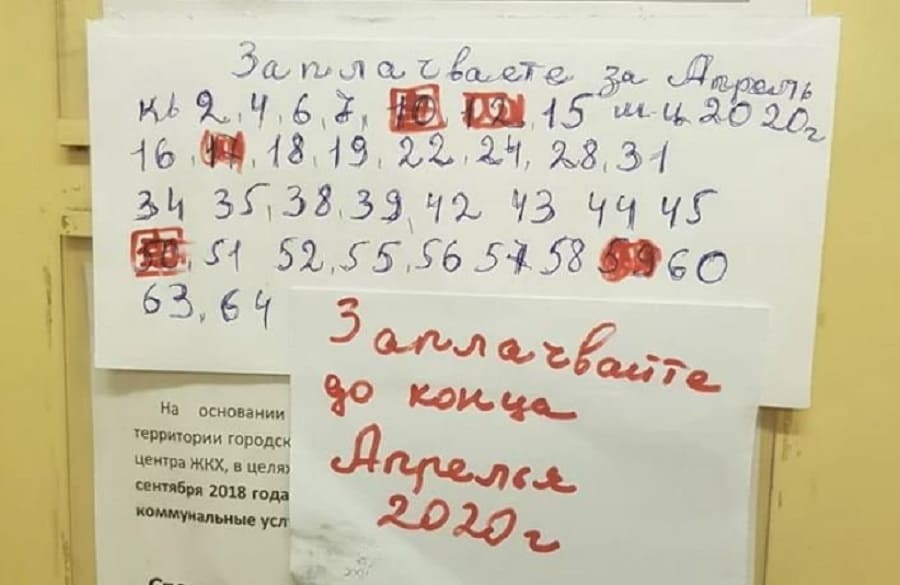 Заплачваете за Апрель
кв 2,4,6,7,10,12,15 м-ц 2020г
16,17,18,19,22,24,28,31
34 35,38,39,42 43 44 45
50,51 52,55,56 57 58 59 60
63,64
Заплачвайте
до конца
Апрелья
2020г
На основании
территории городск
центра ЖКХ, в целях
сентября 2018 года
коммунальные усл